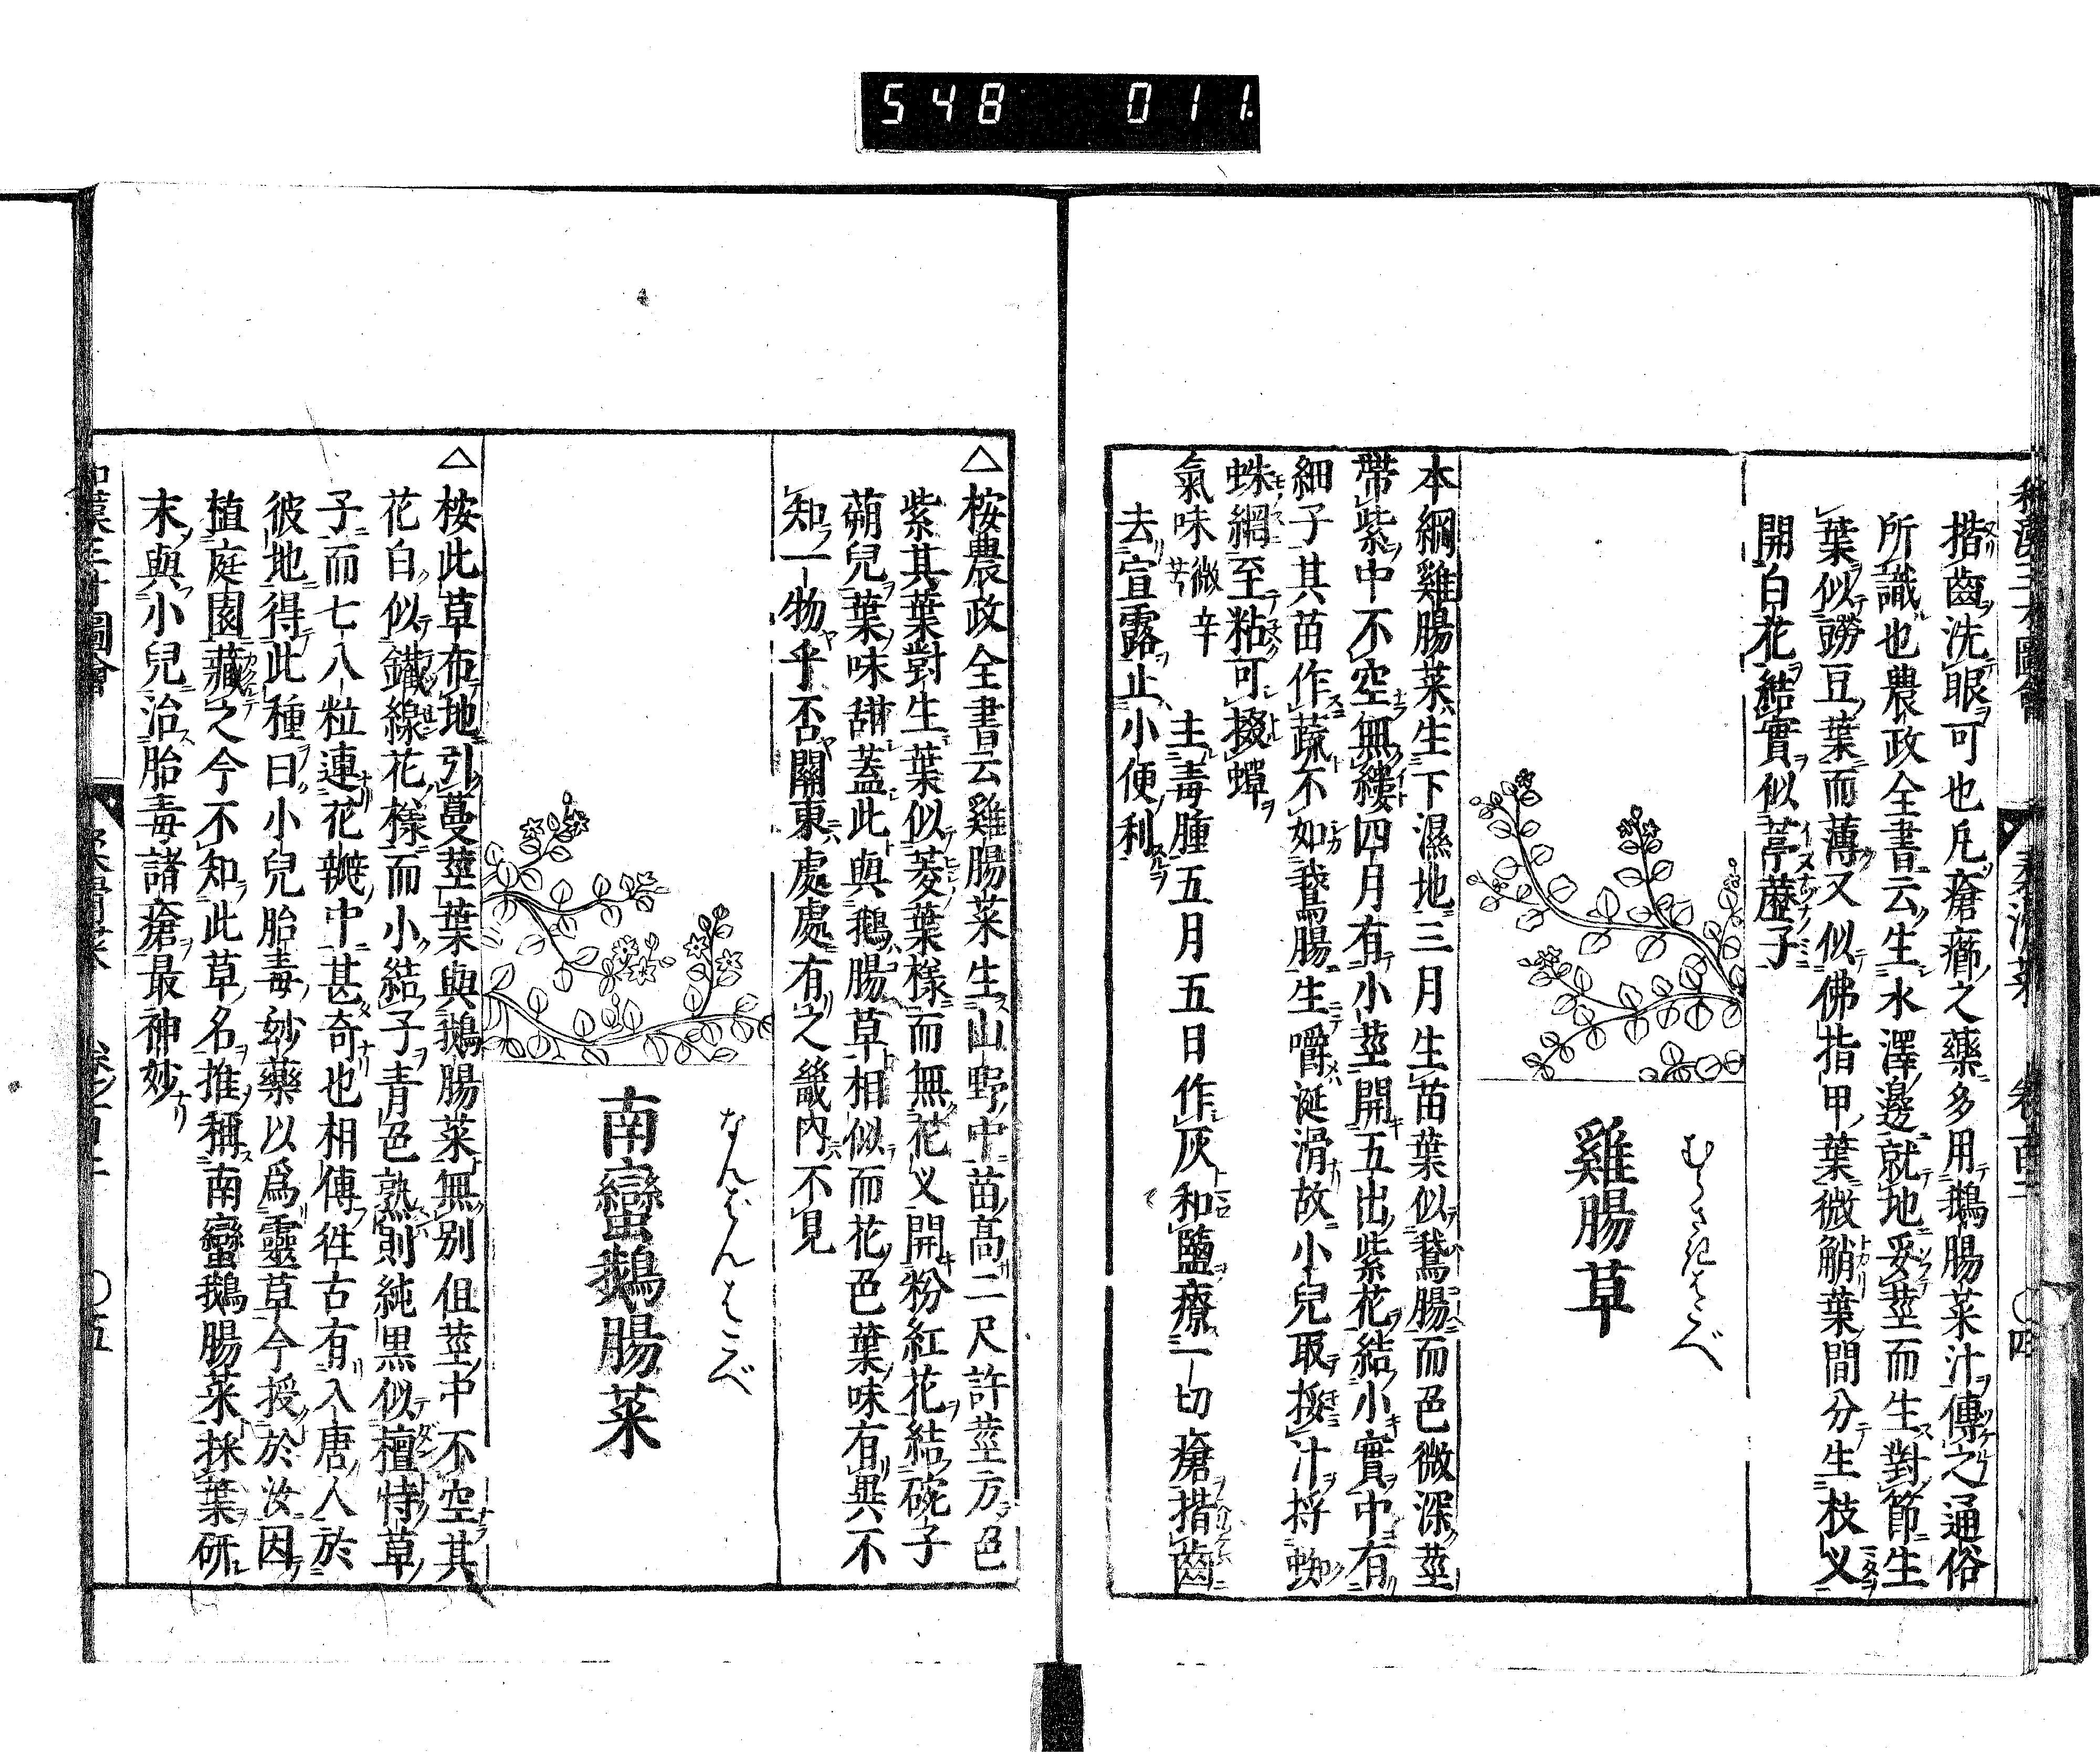 548 011
揩齒洗眼可也凡瘡癤之藥多用鵝腸菜汁傳之通俗
所識也農政全書云生水澤邊就地妥莖而生對節生
葉似豆葉而薄又似佛指甲葉微觧葉間分生枝义
開白花結實似葶藶子
むらさきはこべ
雞腸草
本綱雞腸菜生下濕地三月生苗葉似鵞腸而色微深莖
帶紫中不空無縷四月有小莖開五出紫花結小實中有
細子其苗作蔬不如鵞腸生嚼涎滑故小兒取挼汁捋蜘
蛛網至粘可掇蟬
氣味微辛苦 主毒腫五月五日作灰和鹽療一切瘡揩齒
去宣露止小便利
△桉農政全書云雞腸菜生山野中苗高二尺許莖方色
紫其葉對生葉似菱葉樣而無花义開粉紅花結碗子
蒴兒葉味甜蓋此與鵝腸草相似而花色葉味有異不
知一物乎否關東處處有之畿内不見
なんばんはこべ
南蠻鵝腸菜
△桉此草布地引蔓莖葉與鵝腸菜無別但莖中不空其
花白似鐵線花樣而小結子青色熟則純黒似檀特草
子而七八粒連花瓣中甚奇也相傳徃古有入唐人於
彼地得此種曰小兒胎毒玅藥以爲靈草今授於汝因
植庭園藏之今不知此草名推稱南蠻鵝腸菜採葉研
末與小兒治胎毒諸瘡最神妙